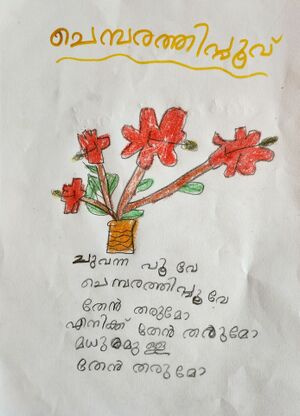 ചെമ്പരത്തിപ്പൂവ്
ചുവന്ന പൂ വേ
ചെമ്പരത്തിപ്പൂ വേ
തേൻ തരുമോ
എനിക്ക് തേൻ തരുമോ
മധുരമുള്ള
തേൻ തരുമോ